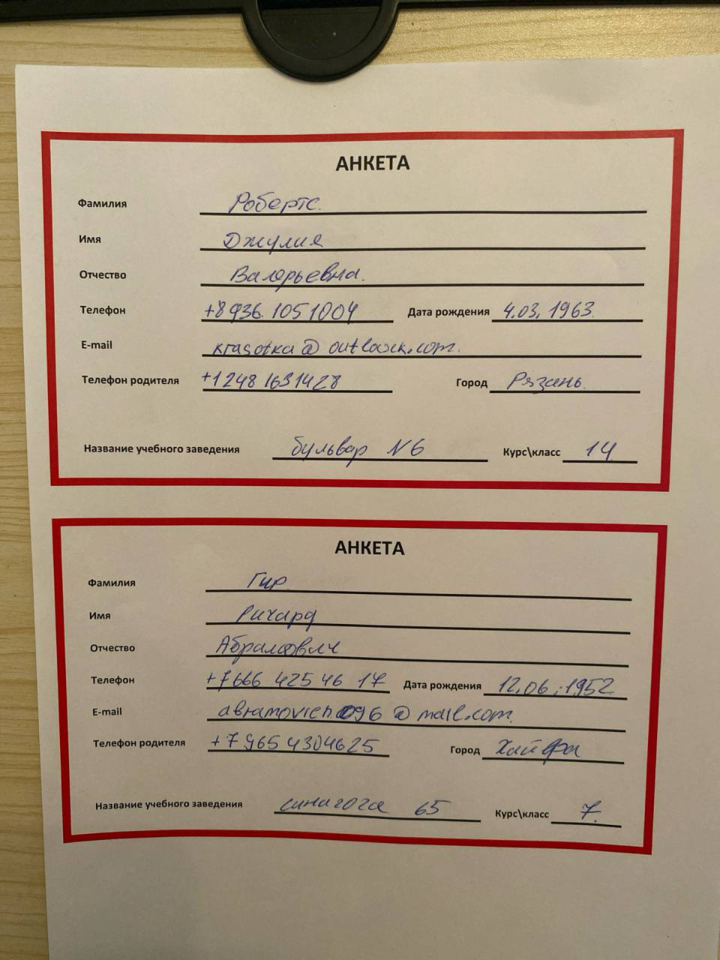 АНКЕТА
Фамилия Робертс.
Имя Джулия
Отчество Валерьевна.
Телефон +8936.1051004 Дата рождения 4.03.1963.
E-mail krasotka@outlook.com.
Телефон родителя +12481631428 Город Рязань
Название учебного заведения бульвар N6 Курс\класс 14
АНКЕТА
Фамилия Гир
Имя Ричард
Отчество Абрамович
Телефон +7666 425 46 17 Дата рождения 12.06.1952
E-mail abramovich096@mail.com.
Телефон родителя +7965 4304625 Город Хайфа
Название учебного заведения синагога 65 Курс\класс 7.